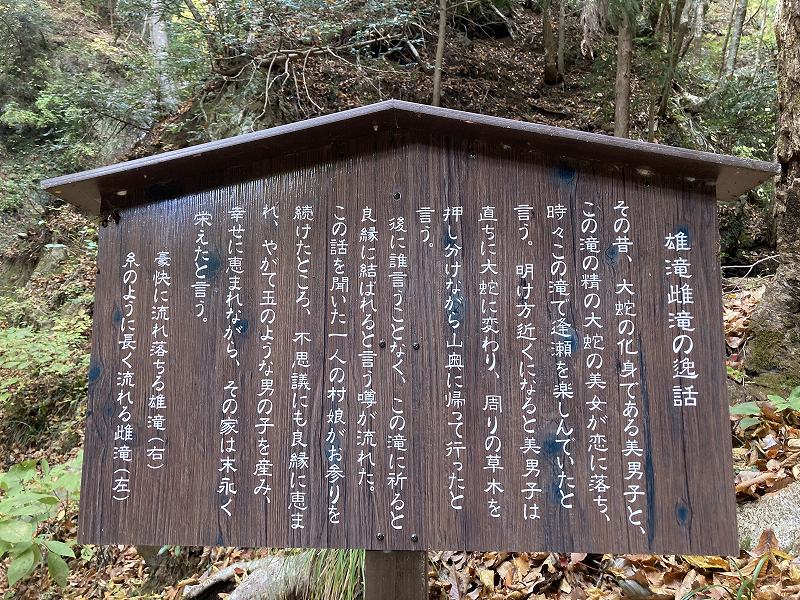 雄滝雌滝の逸話
その昔、大蛇の化身である美男子と、
この滝の精の大蛇の美女が恋に落ち、
時々この滝で逢瀬を楽しんでいたと
言う。明け方近くになると美男子は
直ちに大蛇に変わり、周りの草木を
押し分けながら山奥に帰って行ったと
言う。
後に誰言うことなく、この滝に祈ると
良縁に結ばれると言う噂が流れた。
この話を聞いた一人の村娘がお参りを
続けたところ、不思議にも良縁に恵ま
れ、やがて玉のような男の子を産み、
幸せに恵まれながら、その家は末永く
栄えたと言う。
豪快に流れ落ちる雄滝（右）
糸のように長く流れる雌滝（左）